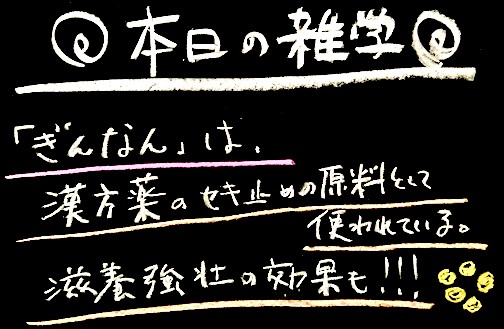 本日の雑学
「ぎんなん」は、
漢方薬のセキ止めの原料として
使われている。
滋養強壮の効果も!!!